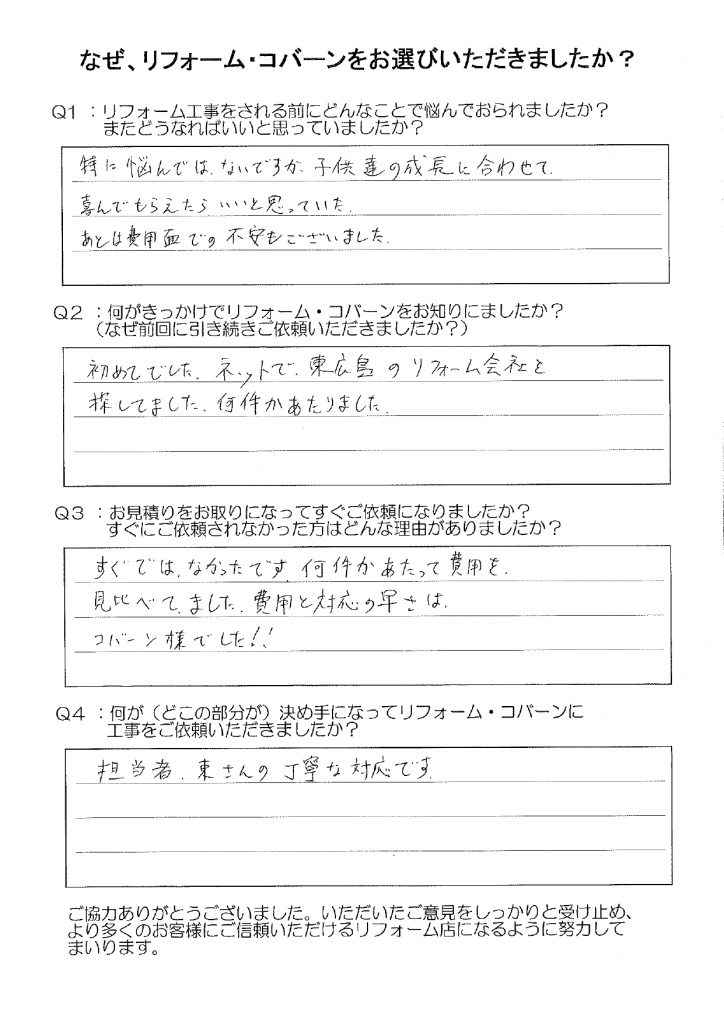 なぜ、リフォーム・コバーンをお選びいただきましたか？
Q1：リフォーム工事をされる前にどんなことで悩んでおられましたか？
またどうなればいいと思っていましたか？
特に悩んでは、ないですが、子供達の成長に合わせて、
喜んでもらえたらいいと思っていた。
あとは費用面での不安もございました。
Q2：何がきっかけでリフォーム・コバーンをお知りにましたか？
（なぜ前回に引き続きご依頼いただきましたか？）
初めてでした。ネットで、東広島のリフォーム会社を
探してました。何件かあたりました。
Q3：お見積りをお取りになってすぐご依頼になりましたか？
すぐにご依頼されなかった方はどんな理由がありましたか？
すぐでは、なかったです。何件かあたって費用を、
見比べて、ました。費用と対応の早さは、
コバーン様でした！！
Q4：何が（どこの部分が）決め手になってリフォーム・コバーンに
工事をご依頼いただきましたか？
担当者、東さんの丁寧な対応です。
ご協力ありがとうございました。いただいたご意見をしっかりと受け止め、
より多くのお客様にご信頼いただけるリフォーム店になるように努力して
まいります。